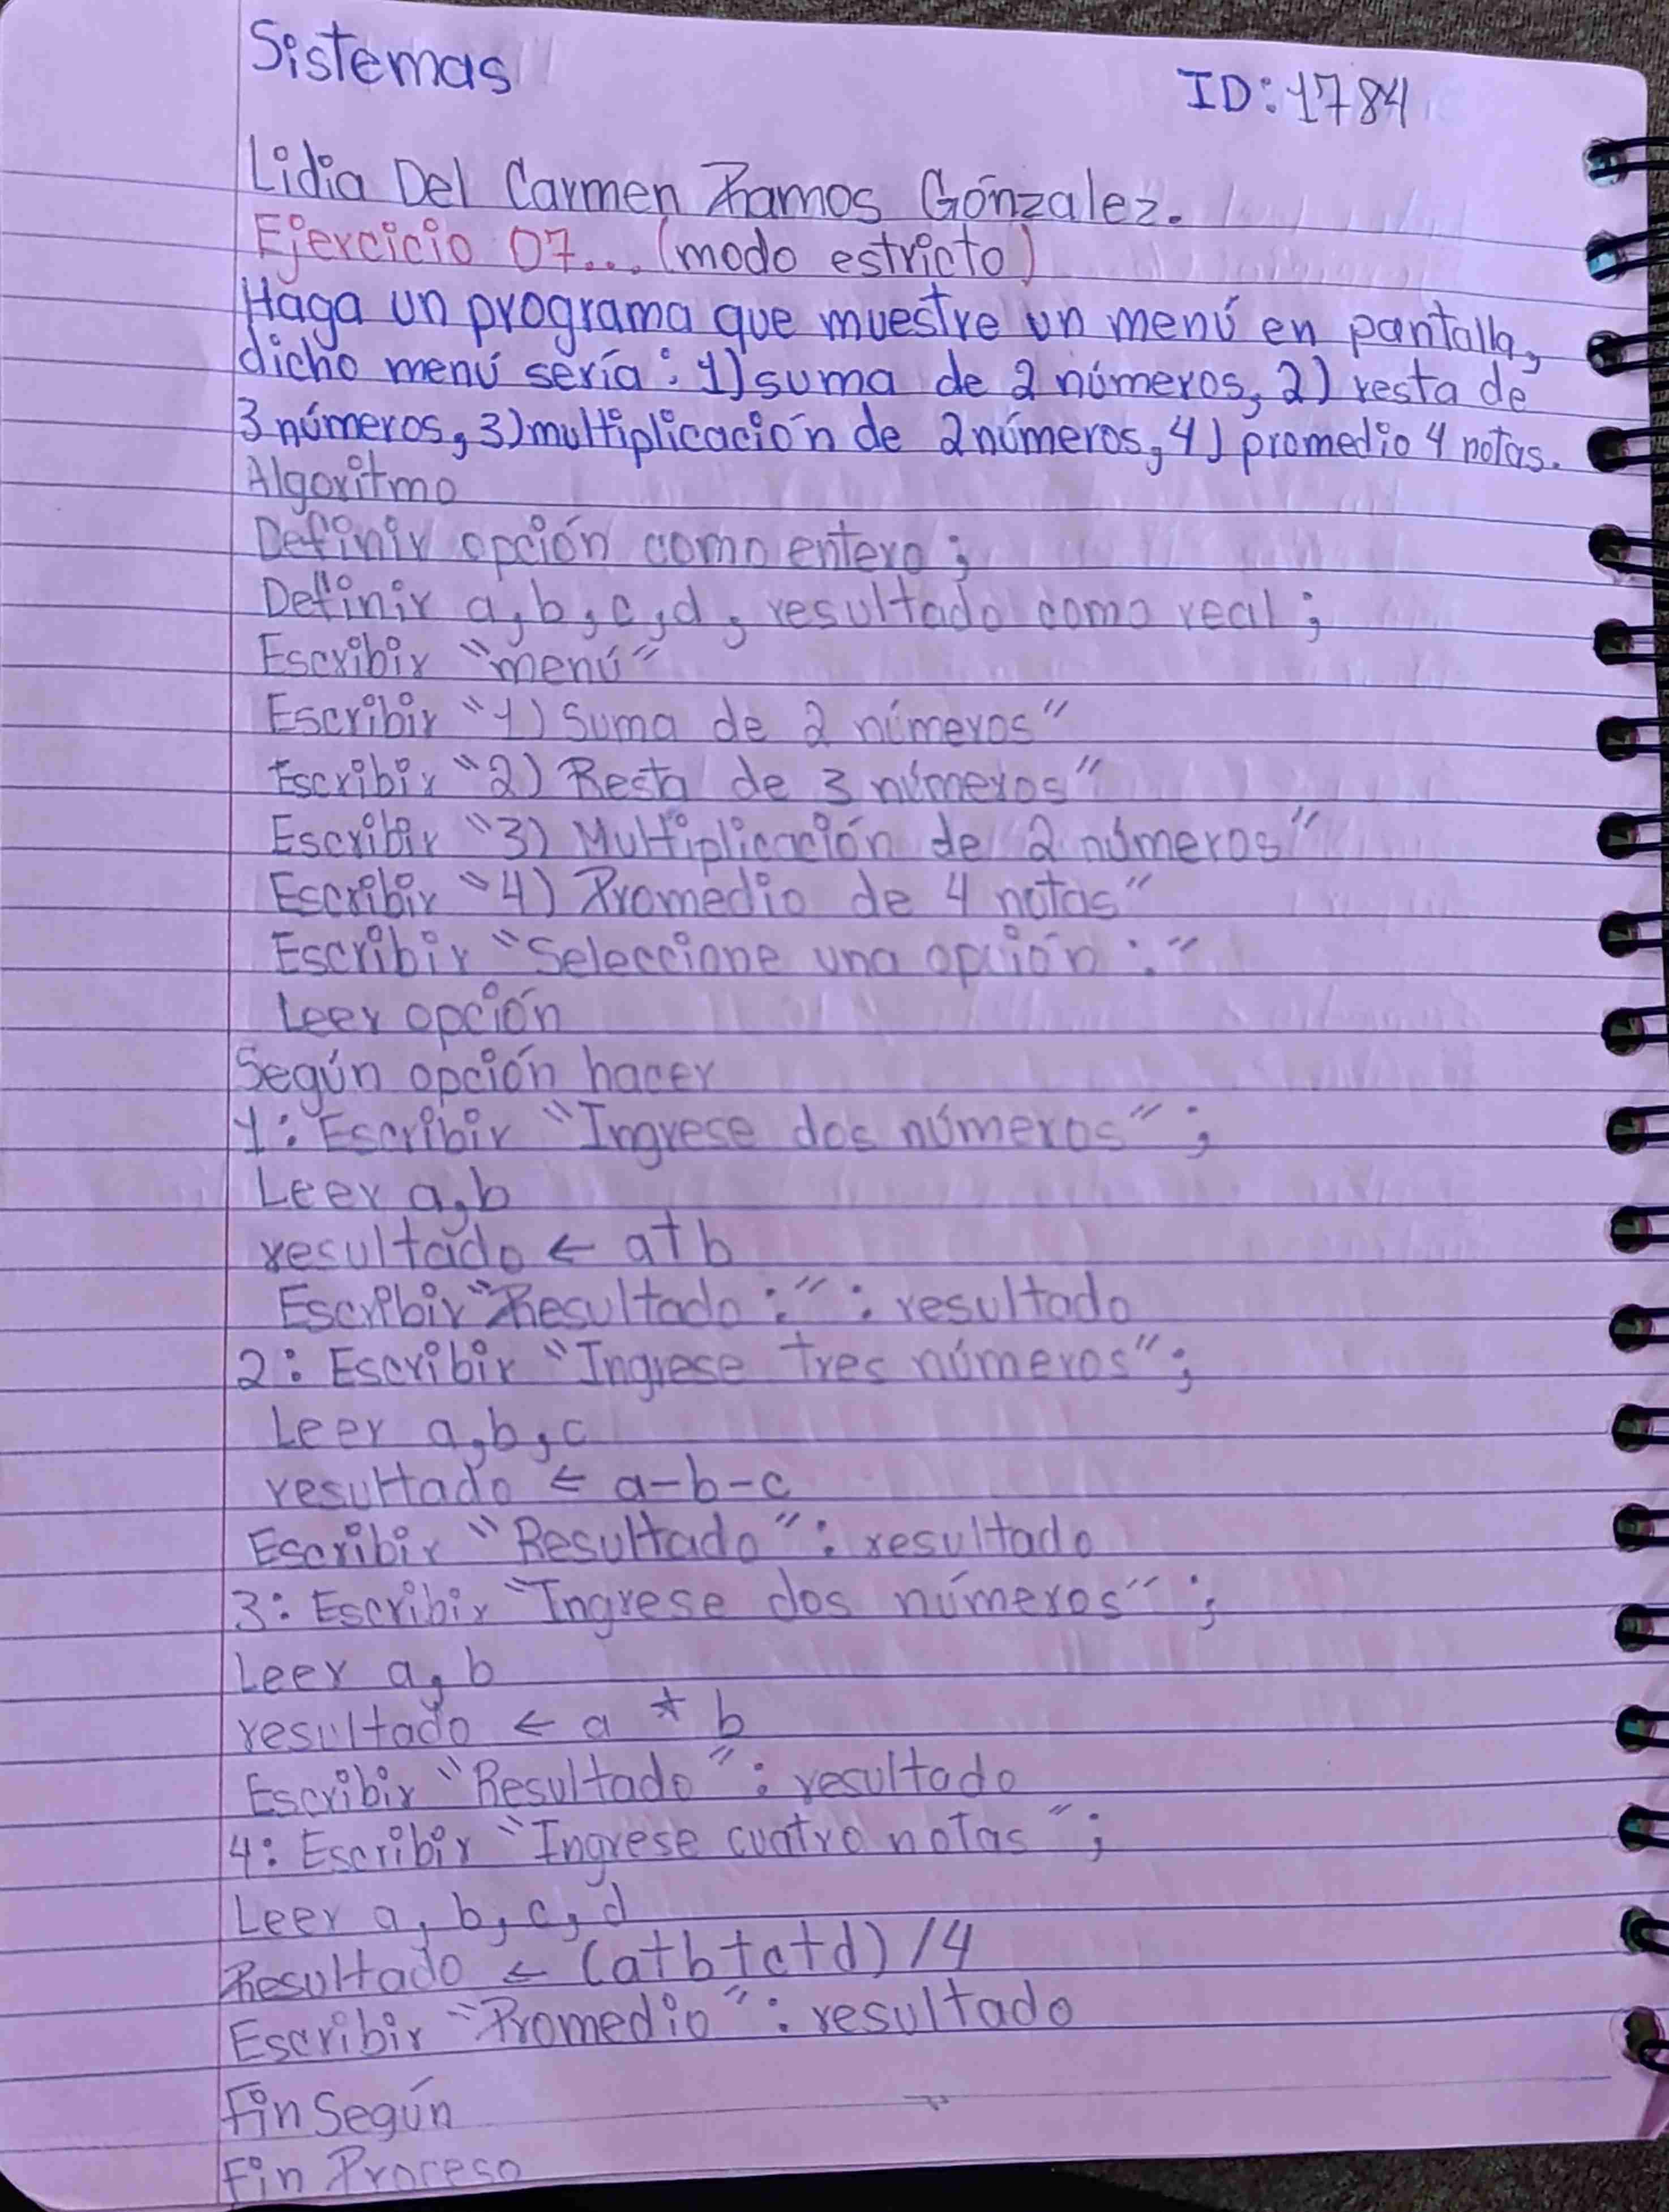 Sistemas
ID: 1784
Lidia Del Carmen Ramos Gónzalez.
Ejercicio 07... (modo estricto)
Haga un programa que muestre un menú en pantalla,
dicho menú sería: 1) suma de 2 números, 2) resta de
3 números, 3) multiplicación de 2 números, 4) promedio 4 notas.
Algoritmo
Definir opción como entero;
Definir a, b, c, d, resultado como real;
Escribir "menú"
Escribir "1) Suma de 2 números"
Escribir "2) Resta de 3 números"
Escribir "3) Multiplicación de 2 números"
Escribir "4) Promedio de 4 notas"
Escribir "Seleccione una opción:"
Leer opción
Según opción hacer
1: Escribir "Ingrese dos números";
Leer a, b
resultado ← a+b
Escribir "Resultado:": resultado
2: Escribir "Ingrese tres números";
Leer a, b, c
resultado ← a-b-c
Escribir "Resultado": resultado
3: Escribir "Ingrese dos números";
Leer a, b
resultado ← a * b
Escribir "Resultado": resultado
4: Escribir "Ingrese cuatro notas";
Leer a, b, c, d
Resultado ← (a+b+c+d)/4
Escribir "Promedio": resultado
Fin Según
Fin Proceso